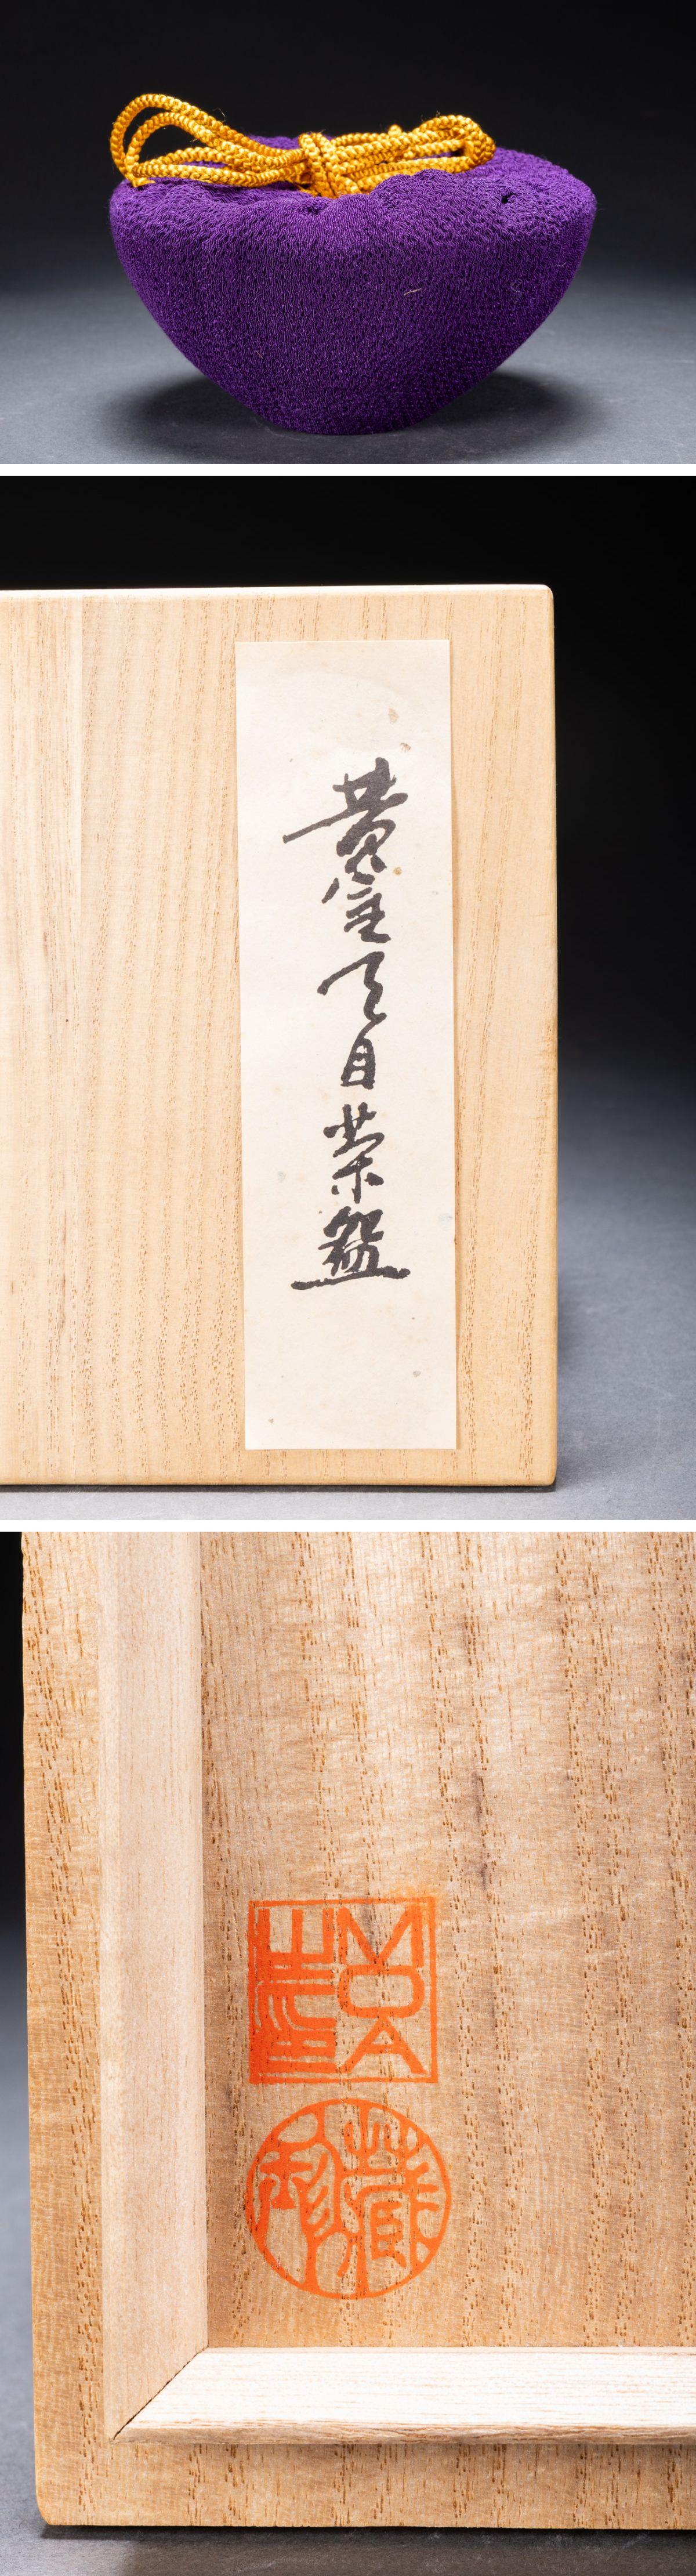 黄金天目茶盌
MOA